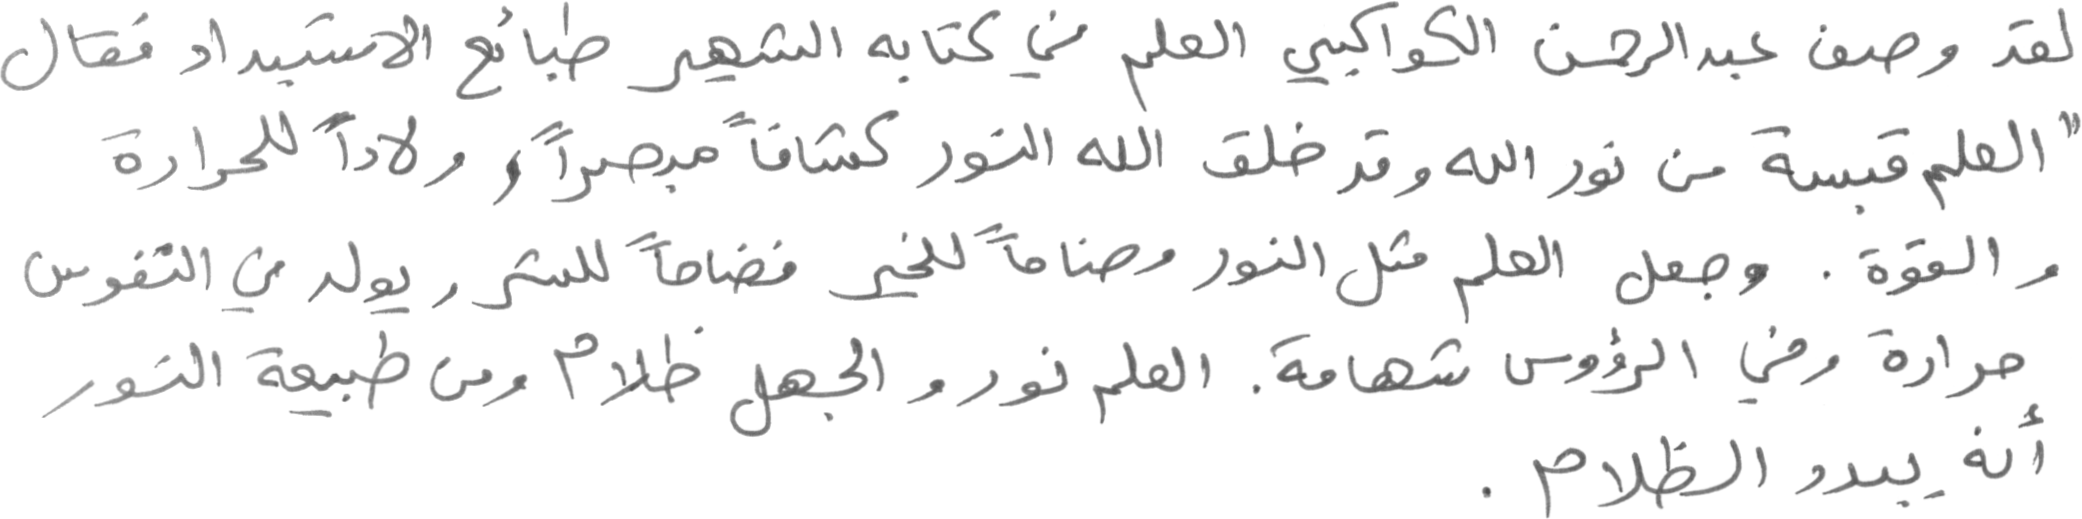 لقد وصف عبدالرحمن الكواكبي العلم في كتابه الشهير طبائع الاستبداد فقال
"العلم قبسة من نور الله وقد خلق الله النور كشافاً مبصراً، ولاداً للحرارة
والقوة. وجعل العلم مثل النور وضاحاً للخير فضاحاً للشر، يولد في النفوس
حرارة وفي الرؤوس شهامة. العلم نور و الجهل ظلام ومن طبيعة النور
أنه يبدد الظلام.